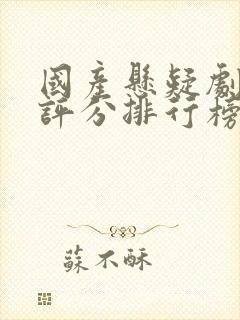 國產懸疑劇
評分排行榜
蘇不酥